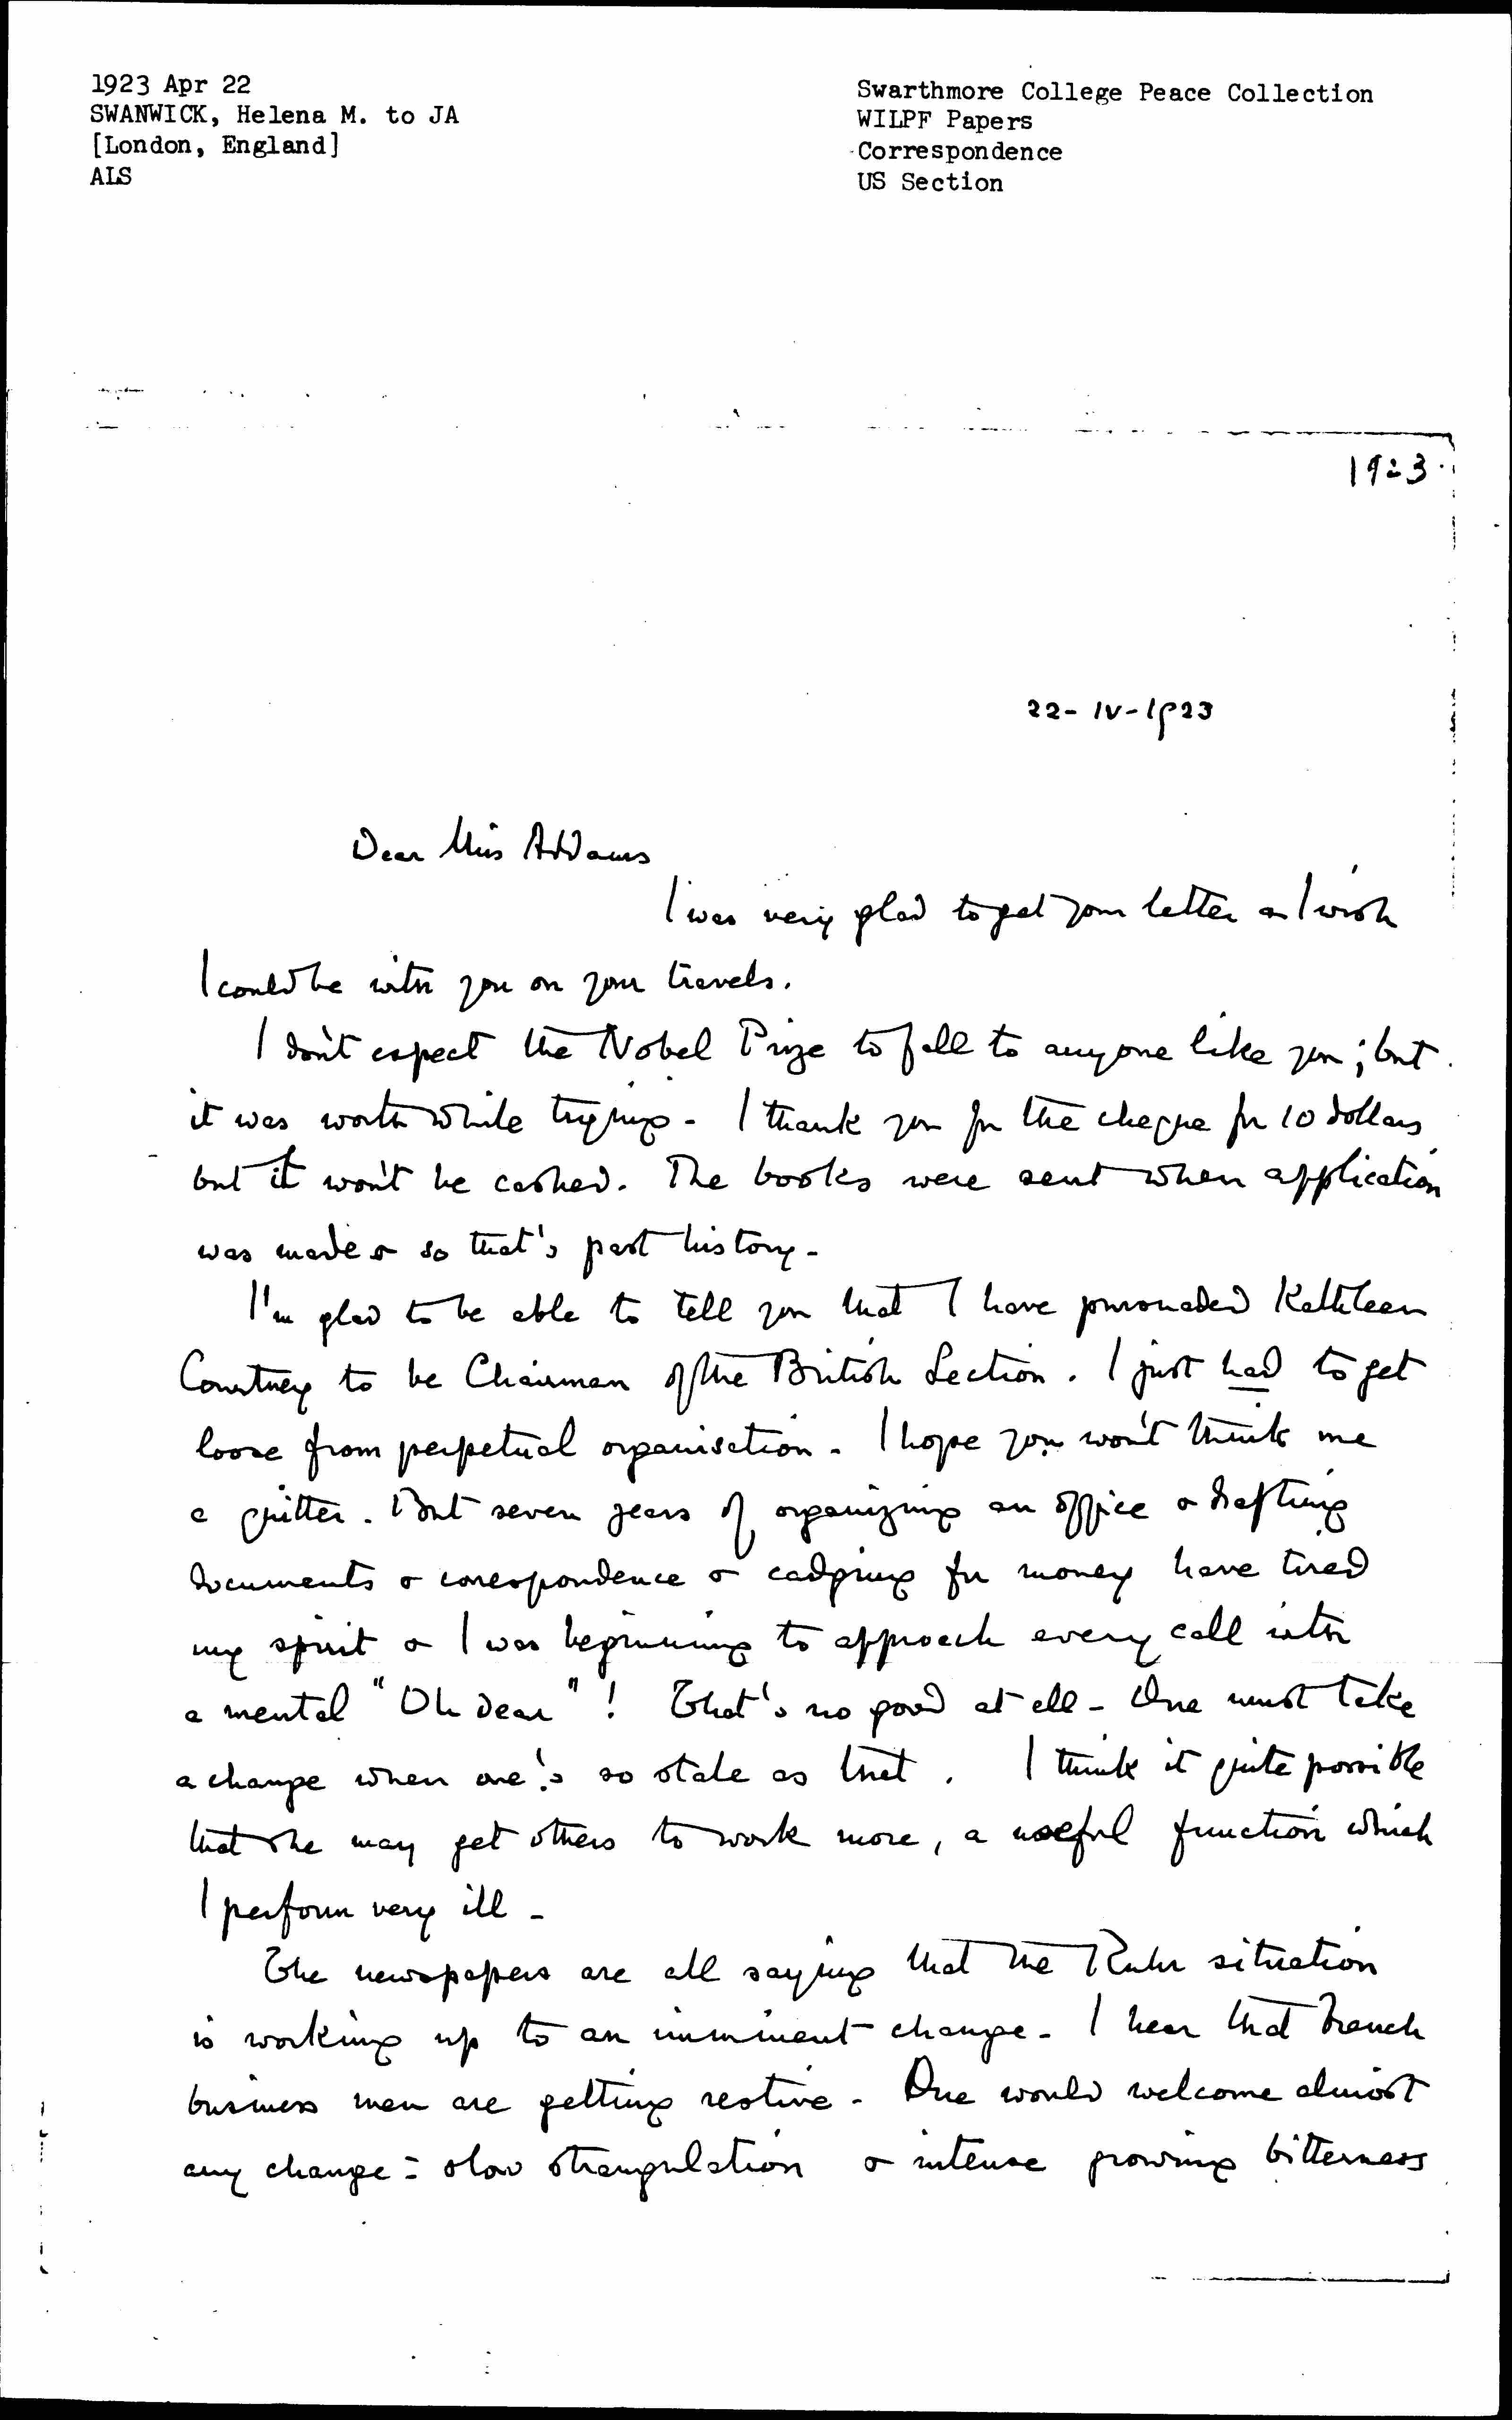 1923 Apr 22
SWANWICK, Helena M. to JA
[London, England]
ALS
Swarthmore College Peace Collection
WILPF Papers
Correspondence
US Section
1923.
22-IV-1923
Dear Miss Addams
I was very glad to get your letter & I wish
I could be with you on your travels.
I don't expect the Nobel Prize to fall to anyone like you; but
it was worth while trying - I thank you for the cheque for 10 dollars
but it won't be cashed. The books were sent when application
was made & so that's past history -
I'm glad to be able to tell you that I have persuaded Kathleen
Courtney to be Chairman of the British Section. I just had to get
loose from perpetual organisation - I hope you won't think me
a quitter. But seven years of organizing an office & drafting
documents & correspondence & cadging for money have tired
my spirit & I was beginning to approach every call with
a mental "Oh dear"! That's no good at all - One must take
a change when one's so stale as that. I think it quite possible
that she may get others to work more, a useful function which
I perform very ill -
The newspapers are all saying that the Ruhr situation
is working up to an imminent change - I hear that French
business men are getting restive - One would welcome almost
any change: slow strangulation & intense growing bitterness